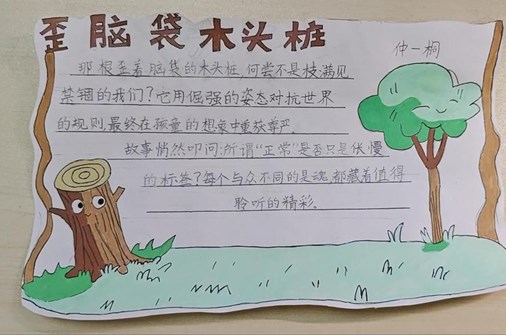 歪脑袋木头桩
仲一桐
那根歪着脑袋的木头桩,何尝不是被满见
禁锢的我们?它用倔强的姿态对抗世界
的规则,最终在孩童的想象中重获尊严。
故事悄然叩问:所谓"正常"是否只是傲慢
的标签?每个与众不同的灵魂,都藏着值得
聆听的精彩.